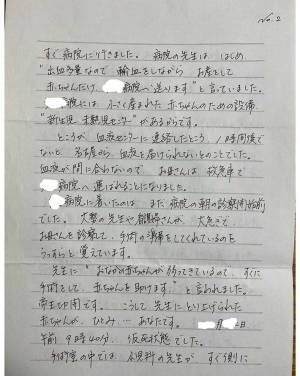 No. 2
すぐ病院に行きました。病院の先生は はじめ
"出血多量なので 輸血をしながら お産をして
赤ちゃんだけ 病院へ送ります"と言っていました。
病院には 小さく産まれた赤ちゃんのための設備
"新生児 未熟児センター"があるからです。
ところが 血液センターに連絡したところ、1時間後で
ないと 名古屋から 血液を届けられないとのことでした。
血液が間に合わないので お母さんは 救急車で
病院へ 運ばれることになりました。
病院に着いたのは まだ 病院の朝の診察開始前
でした。大勢の先生や 看護婦さんが 大急ぎで
お母さんを診察して、手術の準備をしてくれているのを
うっすらと 覚えています。
先生に "おなかの赤ちゃんが 弱ってきているので、すぐに
手術をして、赤ちゃんを助けます"と 言われました。
帝王切開です。 こうして 先生にとり上げられた
赤ちゃんが、ひとみ… あなたです。
午前9時40分、仮死状態でした。
手術室の中では 小児科の先生が すぐ側に